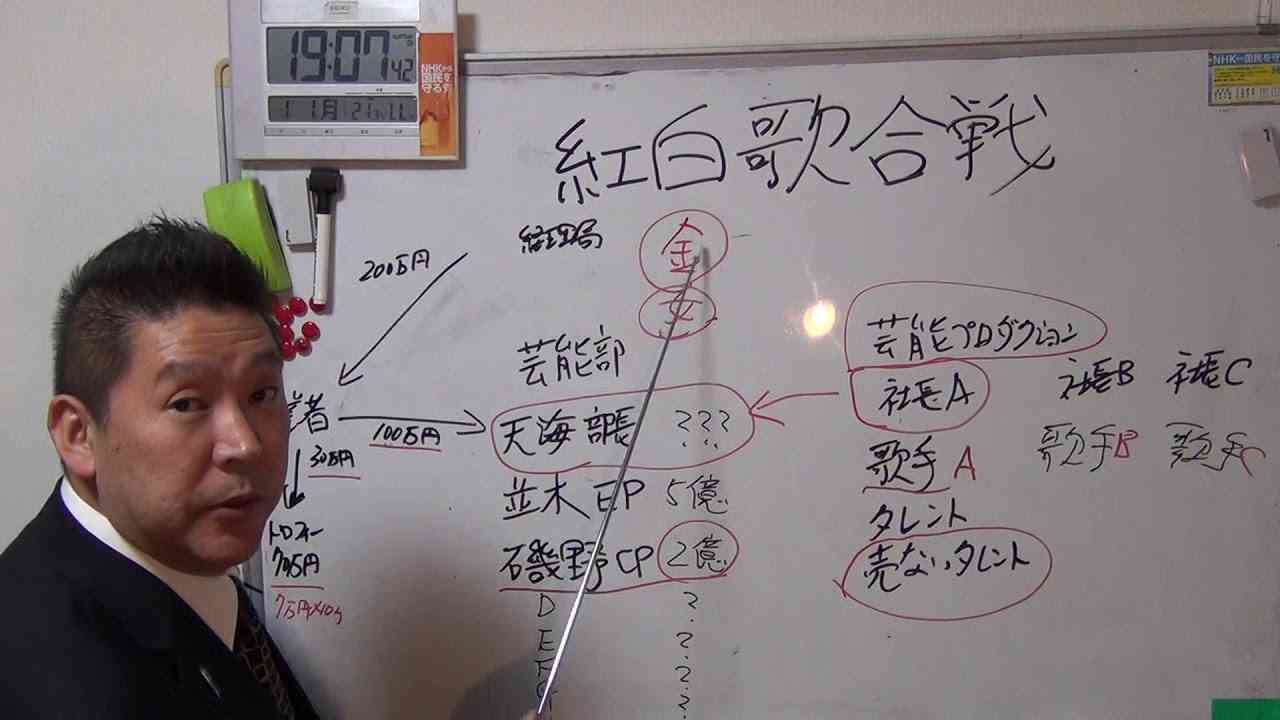 SEIKO
19:07 42
11月
NHKから
国民を
守る
紅白歌合戦
経理局
金
女
200万円
芸能部
芸能プロダクション
社長A
社長B
社長C
者
100万円
天海部長 ???
歌手A
歌手B
歌手C
30万円
並木EP 5億
タレント
トロフィー
7万円
磯野CP 2億
売ないタレント
D ?
E ?
F ?
?